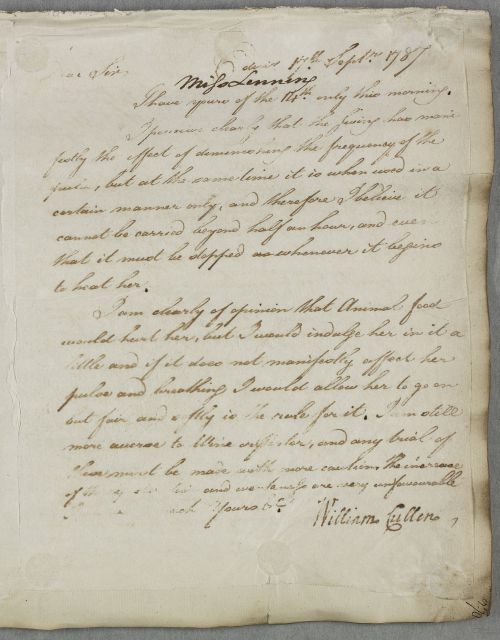 Dear Sir Edinr 17th Septr 1787
Miss Lenning
I have yours of the 14th only this morning.
I perceive clearly that the swing has mani
festly the effect of diminishing the frequency of the
pulse, but at the same time it is when used in a
certain manner only, and therefore I believe it
cannot be carried beyond half an hour, and even
that it must be stopped as whenever it begins
to heat her.
I am clearly of opinion that Animal food
would hurt her, but I would indulge her in it a
little and if it does not manifestly affect her
pulse and breathing I would allow her to go on
but fair and softly is the rule for it. I am still
more averse to Wine or Porter, and any trial of
these must be made with more caution. The increase
of the and weakness are very unfavourable
Yours &c
William Cullen